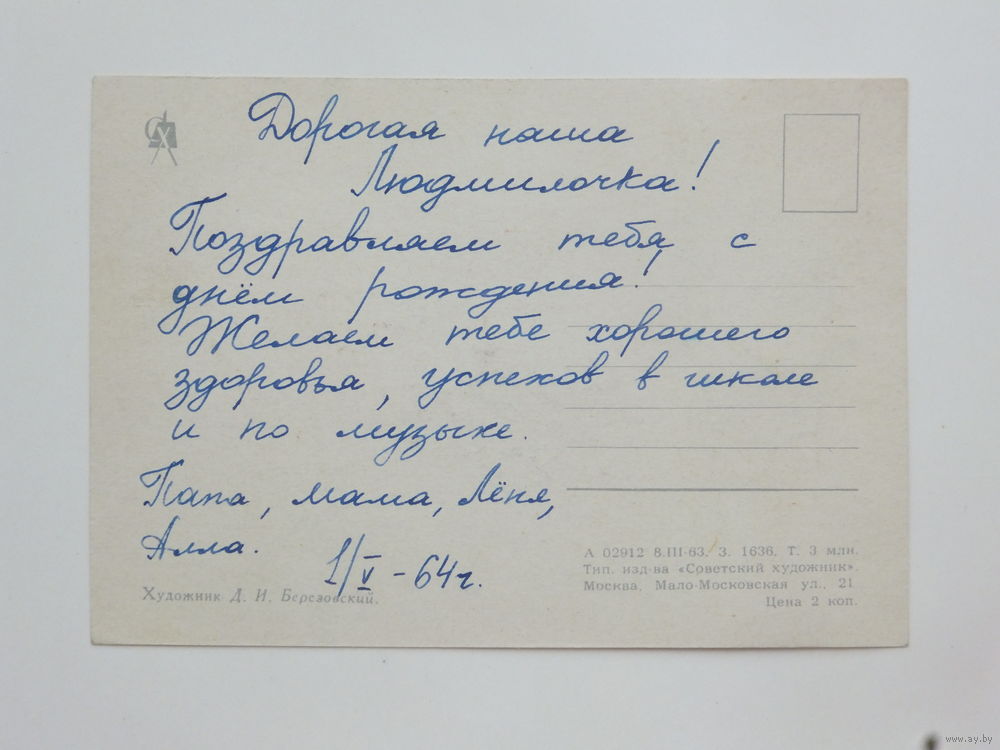 Дорогая наша
Людмилочка!
Поздравляем тебя с
днём рождения!
Желаем тебе хорошего
здоровья, успехов в школе
и по музыке.
Папа, мама, Лёня,
Алла.
1/V - 64 г.
Художник Д. И. Березовский.
А 02912 8.III-63. З. 1636. Т. 3 млн.
Тип. изд-ва «Советский художник».
Москва, Мало-Московская ул., 21
Цена 2 коп.
www.ay.by